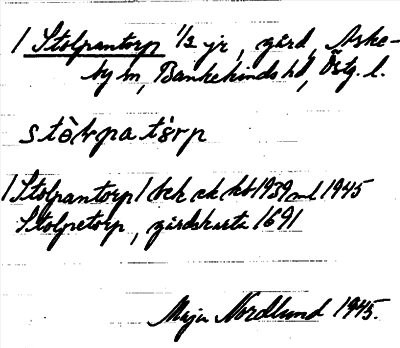 1 Stolpantorp 1/2 jr, gård, Aske-
by sn, Bankekinds hd, Östg. l.
stòlpatårp
1 Stolpantorp 1 bck ek kbl 1939 ml 1945
Stolpetorp, gårdskarta 1691
Maja Nordlund 1945.